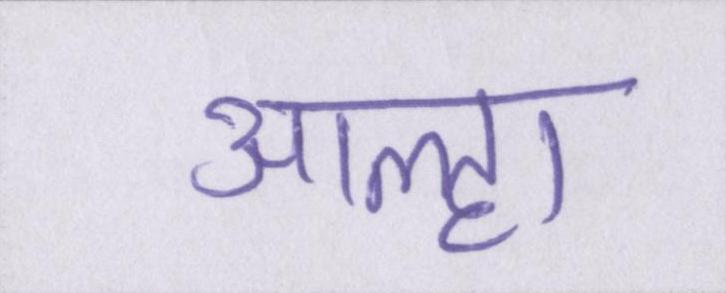 आल्हा